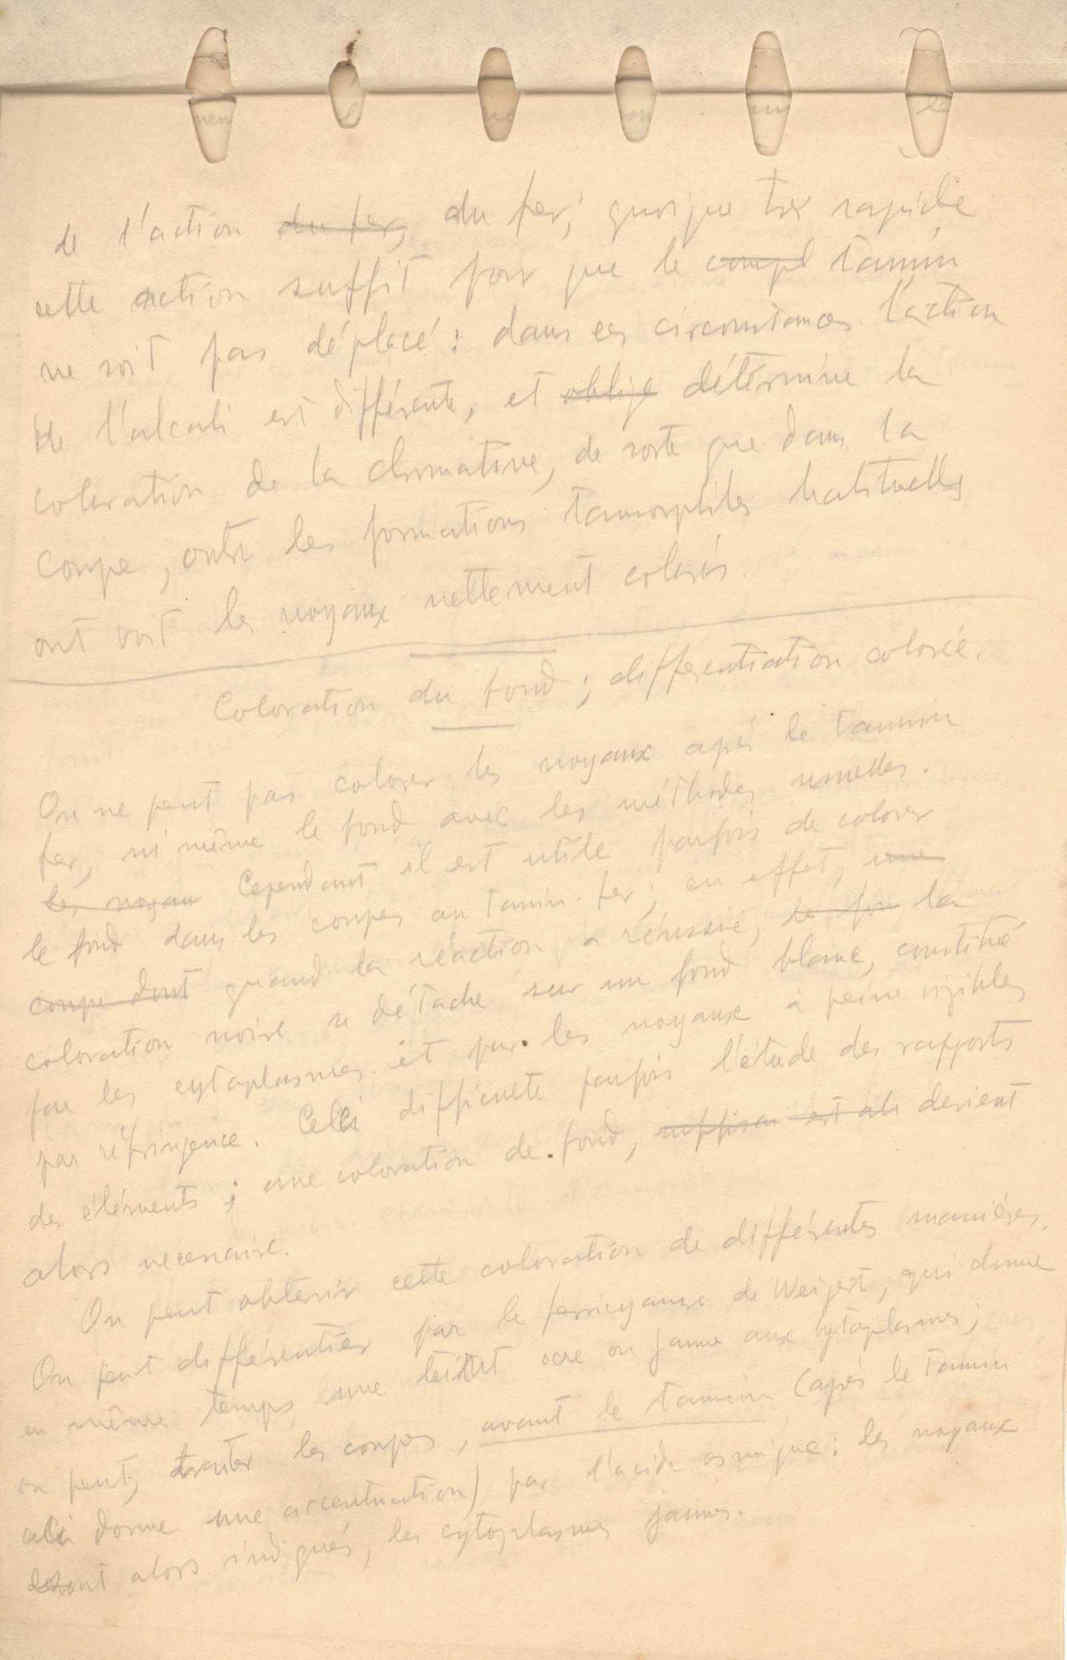 de l'action du fer, du fer; quoique très rapide
cette action suffit pour que le compl tamin
ne soit pas déplacé: dans ces circonstances l'action
de l'alcali est différente, et oblige détermine la
coloration de la chromatine, de sorte que dans la
coupe, outre les formations tannophiles habituelles
ont voit les noyaux nettement colorés
Coloration du fond; differentiation colorée.
On ne peut pas colorer les noyaux après le tannin
fer, ni même le fond avec les méthodes usuelles.
les noyau Cependant il est utile parfois de colorer
le fond dans les coupes au tamin-fer; en effet, une
coupe dont quand la réaction a réussie, le fon la
coloration noire se détache sur un fond blanc, constitué
par les cytoplasmes et par les noyaux à peine visibles
par réfringence. Celà difficulte parfois l'étude des rapports
des éléments; une coloration de fond, devient
alors necessaire.
On peut obtenir cette coloration de différentes manières.
On peut différentier par le ferricyanure de Weigert, qui donne
en même temps une teint ocre ou jaune aux cytoplasmes;
on peut, traiter les coupes, avant le tannin (après le tamin
cela donne une accentuation) par l'acide osmique: les noyaux
sont alors indiqués, les cytoplasmes jaunes.